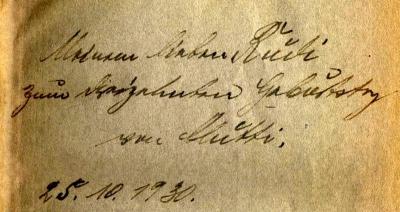 Meinem lieben Rudi
zum dreizehnten Geburtstag
von Mutti.
25. 10. 1930.